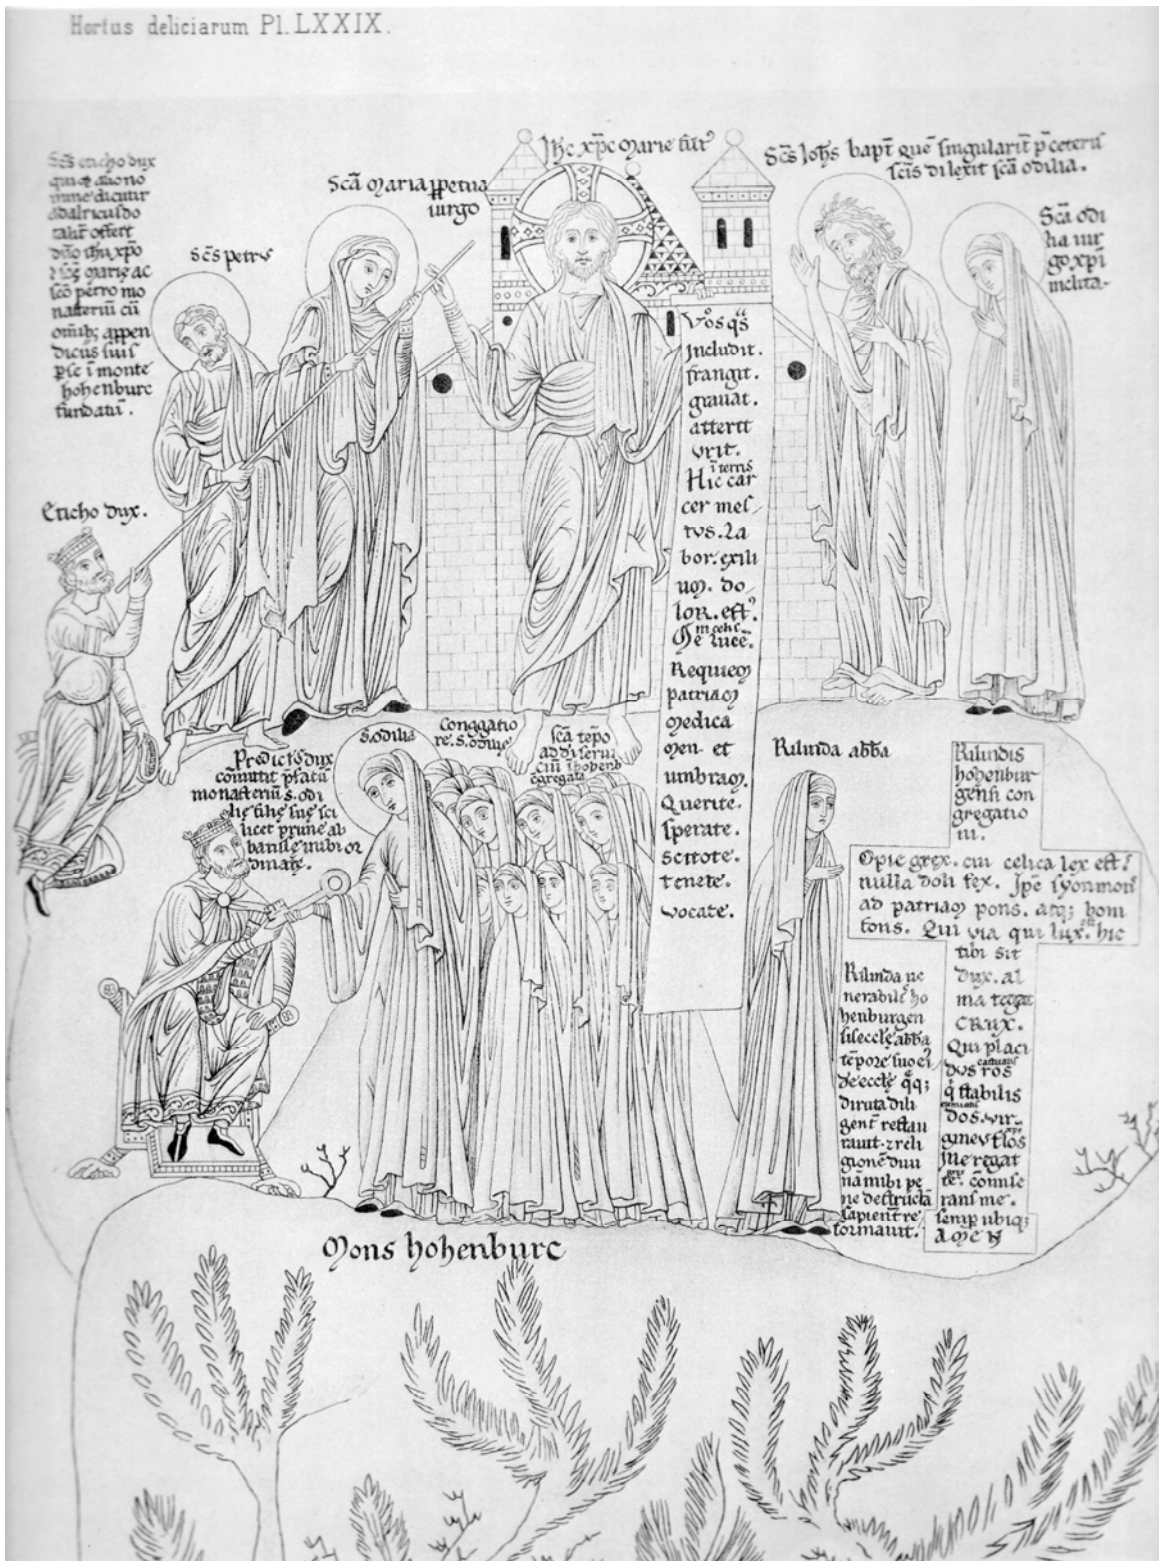 Hortus deliciarum Pl. LXXIX.
Scs eticho dux
qui et alio no
mine dicitur
adalricus do
talit offert
dno ihu xpo
sce marie ac
sco petro mo
nasteriu cu
omib; appen
diciis suis
p se i monte
hohenburc
fundatu.
Scs petrs
Sca Maria ppetua
uirgo
Ihc xpc Marie fili
Scs Iohs bapt que singularit p ceteris
scis dilexit sca odilia.
Sca odi
lia uir
go xpi
inclita.
Eticho dux.
Vos qs
Includit.
frangit.
grauat.
atterit
vrit.
i terris
Hic car
cer mes
tvs. La
bor. exili
um. do
lor. est.
in celis
Me luce.
Requiem
patriam
Medica
men et
umbram.
Querite.
sperate.
scitote.
tenete.
vocate.
Predict dux
comittit pfatu
monasteriu s. odi
lie filie sue sci
licet prime ab
batisse inibi or
dinate.
s. odilia
Conggatio
re. s. odilie
sca tepo
ad di serui
ciu i hohenb
egregata
Rilinda abba
Rilindis
hohenbur
gensi con
gregatio
ni.
O pie grex. cui celica lex est.
nulla doli fex. Ipse syon mons
ad patriam pons. atq; boni
fons. Qui via qui lux. hic
tibi sit
dux. al
ma tegat
crux.
Qui placi
dus ros
q stabilis
dos. vir
gineus flos
Ille regat
te. comise
rans me.
semp ubiq;
AMEN
Rilinda ue
nerabilis ho
henburgen
sis ecclie abba
tepore suo ei
de ecclie qq;
diruta dili
gent restau
rauit. z reli
gione diui
na inibi pe
ne destructa
sapient re
formauit.
Mons hohenburc